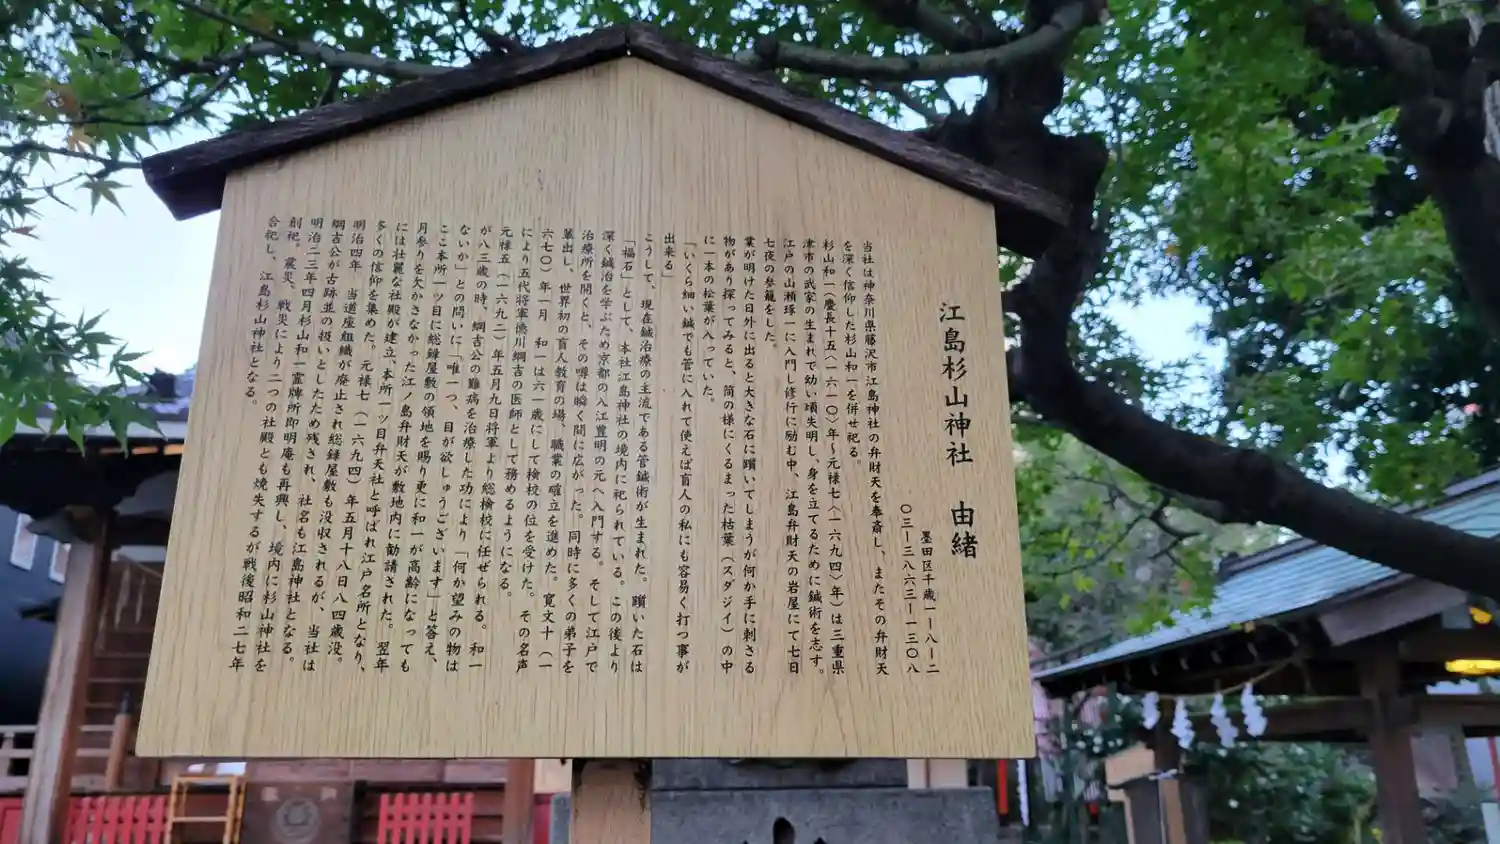 江島杉山神社　由緒
墨田区千歳一ー八ー二
〇三ー三八六三ー一三〇八
当社は神奈川県藤沢市江島神社の弁財天を奉斎し、またその弁財天
を深く信仰した杉山和一を併せ祀る。
杉山和一（慶長十五（一六一〇）年〜元禄七（一六九四）年）は三重県
津市の武家の生まれで幼い頃失明し、身を立てるために鍼術を志す。
江戸の山瀬琢一に入門し修行に励む中、江島弁財天の岩屋にて七日
七夜の参籠をした。
業が明けた日外に出ると大きな石に躓いてしまうが何か手に刺さる
物があり探ってみると、筒の様にくるまった枯葉（スダジイ）の中
に一本の松葉が入っていた。
「いくら細い鍼でも管に入れて使えば盲人の私にも容易く打つ事が
出来る」
こうして、現在鍼治療の主流である管鍼術が生まれた。躓いた石は
「福石」として、本社江島神社の境内に祀られている。この後より
深く鍼治を学ぶため京都の入江豊明の元へ入門する。そして江戸で
治療所を開くと、その噂は瞬く間に広がった。同時に多くの弟子を
輩出し、世界初の盲人教育の場、職業の確立を進めた。寛文十（一
六七〇）年一月　和一は六一歳にして検校の位を受けた。その名声
により五代将軍徳川綱吉の医師として務めるようになる。
元禄五（一六九二）年五月九日将軍より総検校に任ぜられる。和一
が八三歳の時、綱吉公の難病を治療した功により「何か望みの物は
ないか」との問いに「唯一つ、目が欲しゅうございます」と答え、
ここ本所一ツ目に総録屋敷の領地を賜り更に和一が高齢になっても
月参りを欠かさなかった江ノ島弁財天が敷地内に勧請された。翌年
には壮麗な社殿が建立、本所一ツ目弁天社と呼ばれ江戸名所となり、
多くの信仰を集めた。元禄七（一六九四）年五月十八日八四歳没。
明治四年　当道座組織が廃止され総録屋敷も没収されるが、当社は
綱吉公が古跡並の扱いとしたため残され、社名も江島神社となる。
明治二三年四月杉山和一霊牌所即明庵も再興し、境内に杉山神社を
創祀。震災、戦災により二つの社殿とも焼失するが戦後昭和二七年
合祀し、江島杉山神社となる。